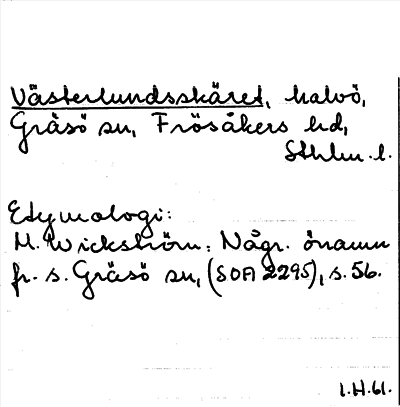 Västerlundsskäret, halvö,
Gräsö sn, Frösåkers hd,
Sthlm. l.
Etymologi:
M. Wickström: Någr. önamn
fr. s. Gräsö sn, (SOA 2295), s. 56.
1.H.61.